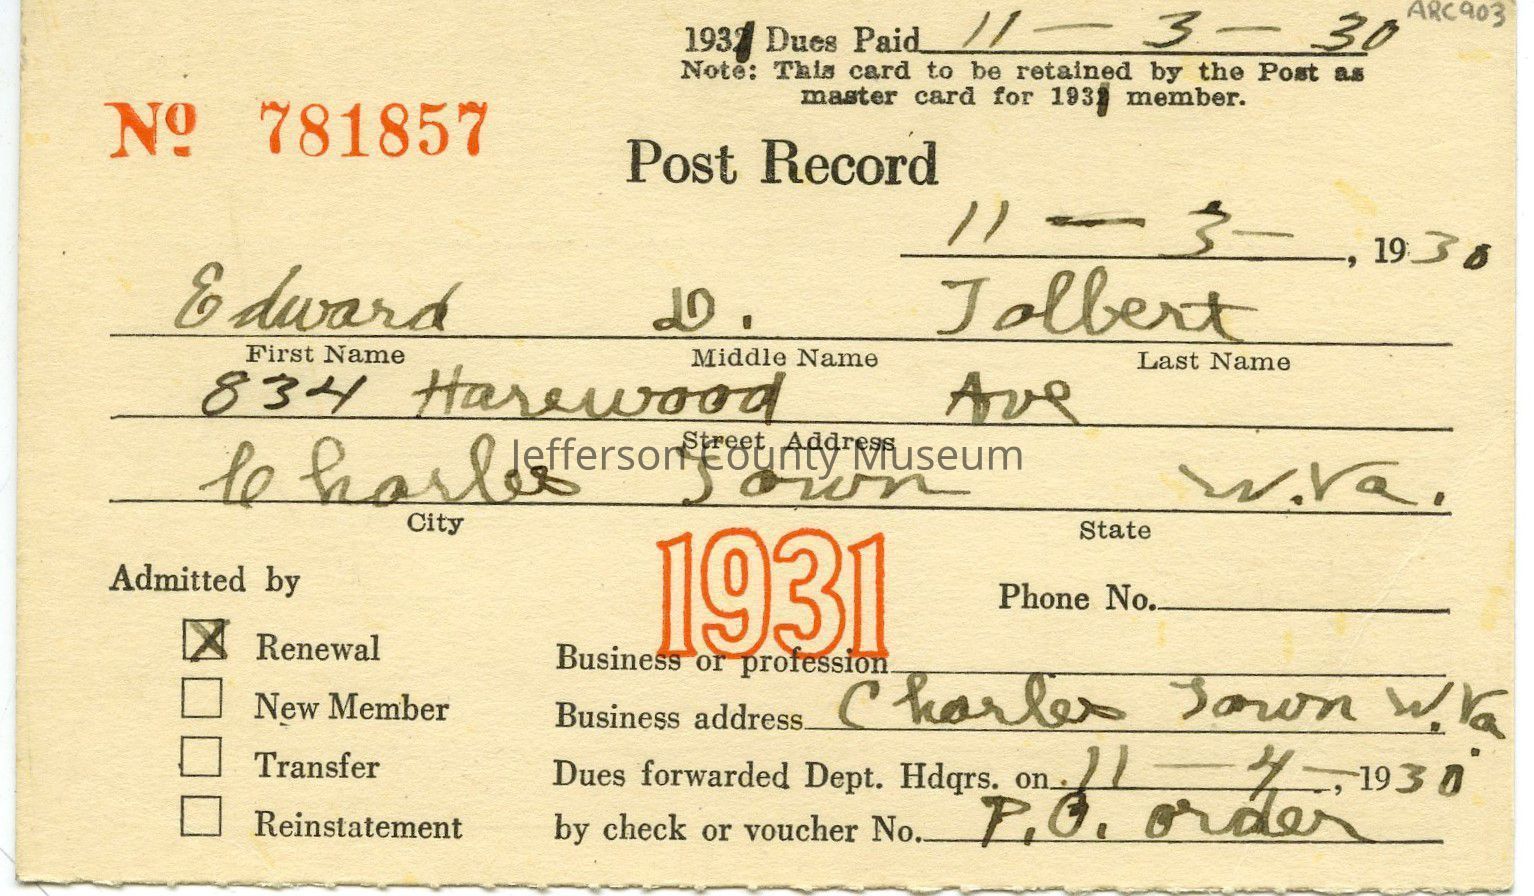 ARC903
1931 Dues Paid 11 — 3 — 30
Note: This card to be retained by the Post as
master card for 1931 member.
No 781857
Post Record
11 — 3 —, 1930
Edward D. Tolbert
First Name Middle Name Last Name
834 Harewood Ave
Street Address
Jefferson County Museum
Charles Town W.Va.
City State
1931
Admitted by
Phone No.
X Renewal
Business or profession
New Member
Business address Charles Town W.Va.
Transfer
Dues forwarded Dept. Hdqrs. on 11 — 4 —, 1930
Reinstatement
by check or voucher No. P.O. order